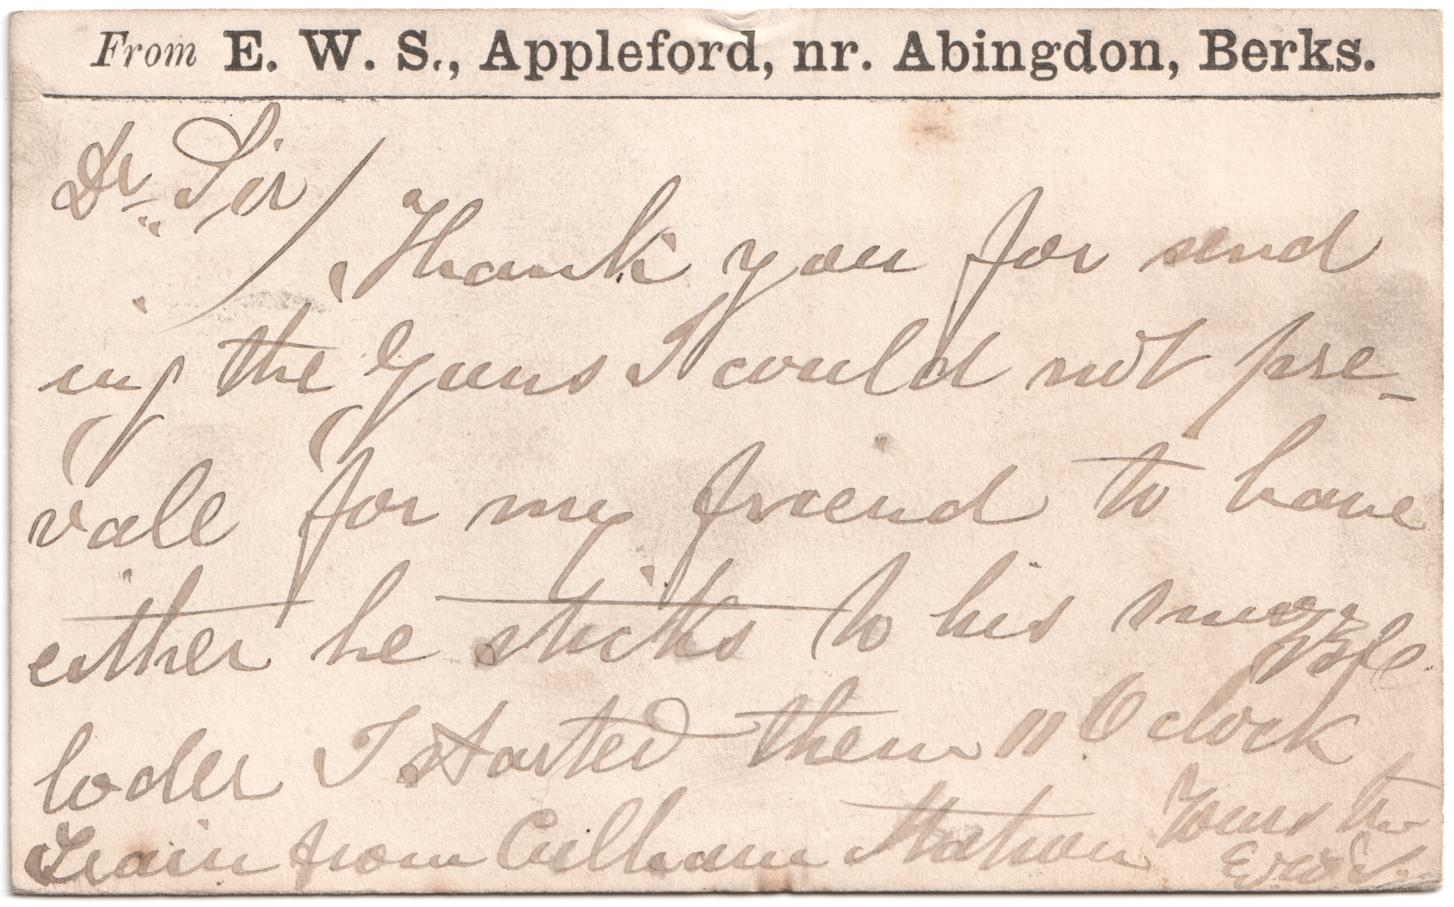 From E. W. S., Appleford, nr. Abingdon, Berks.
Dr Sir/
Thank you for send
ing the Guns I could not pre-
vale for my friend to have
either he sticks to his muzzle
loder I started them 11 O clock
Train from Culham Station Yours tru
E.W.S.